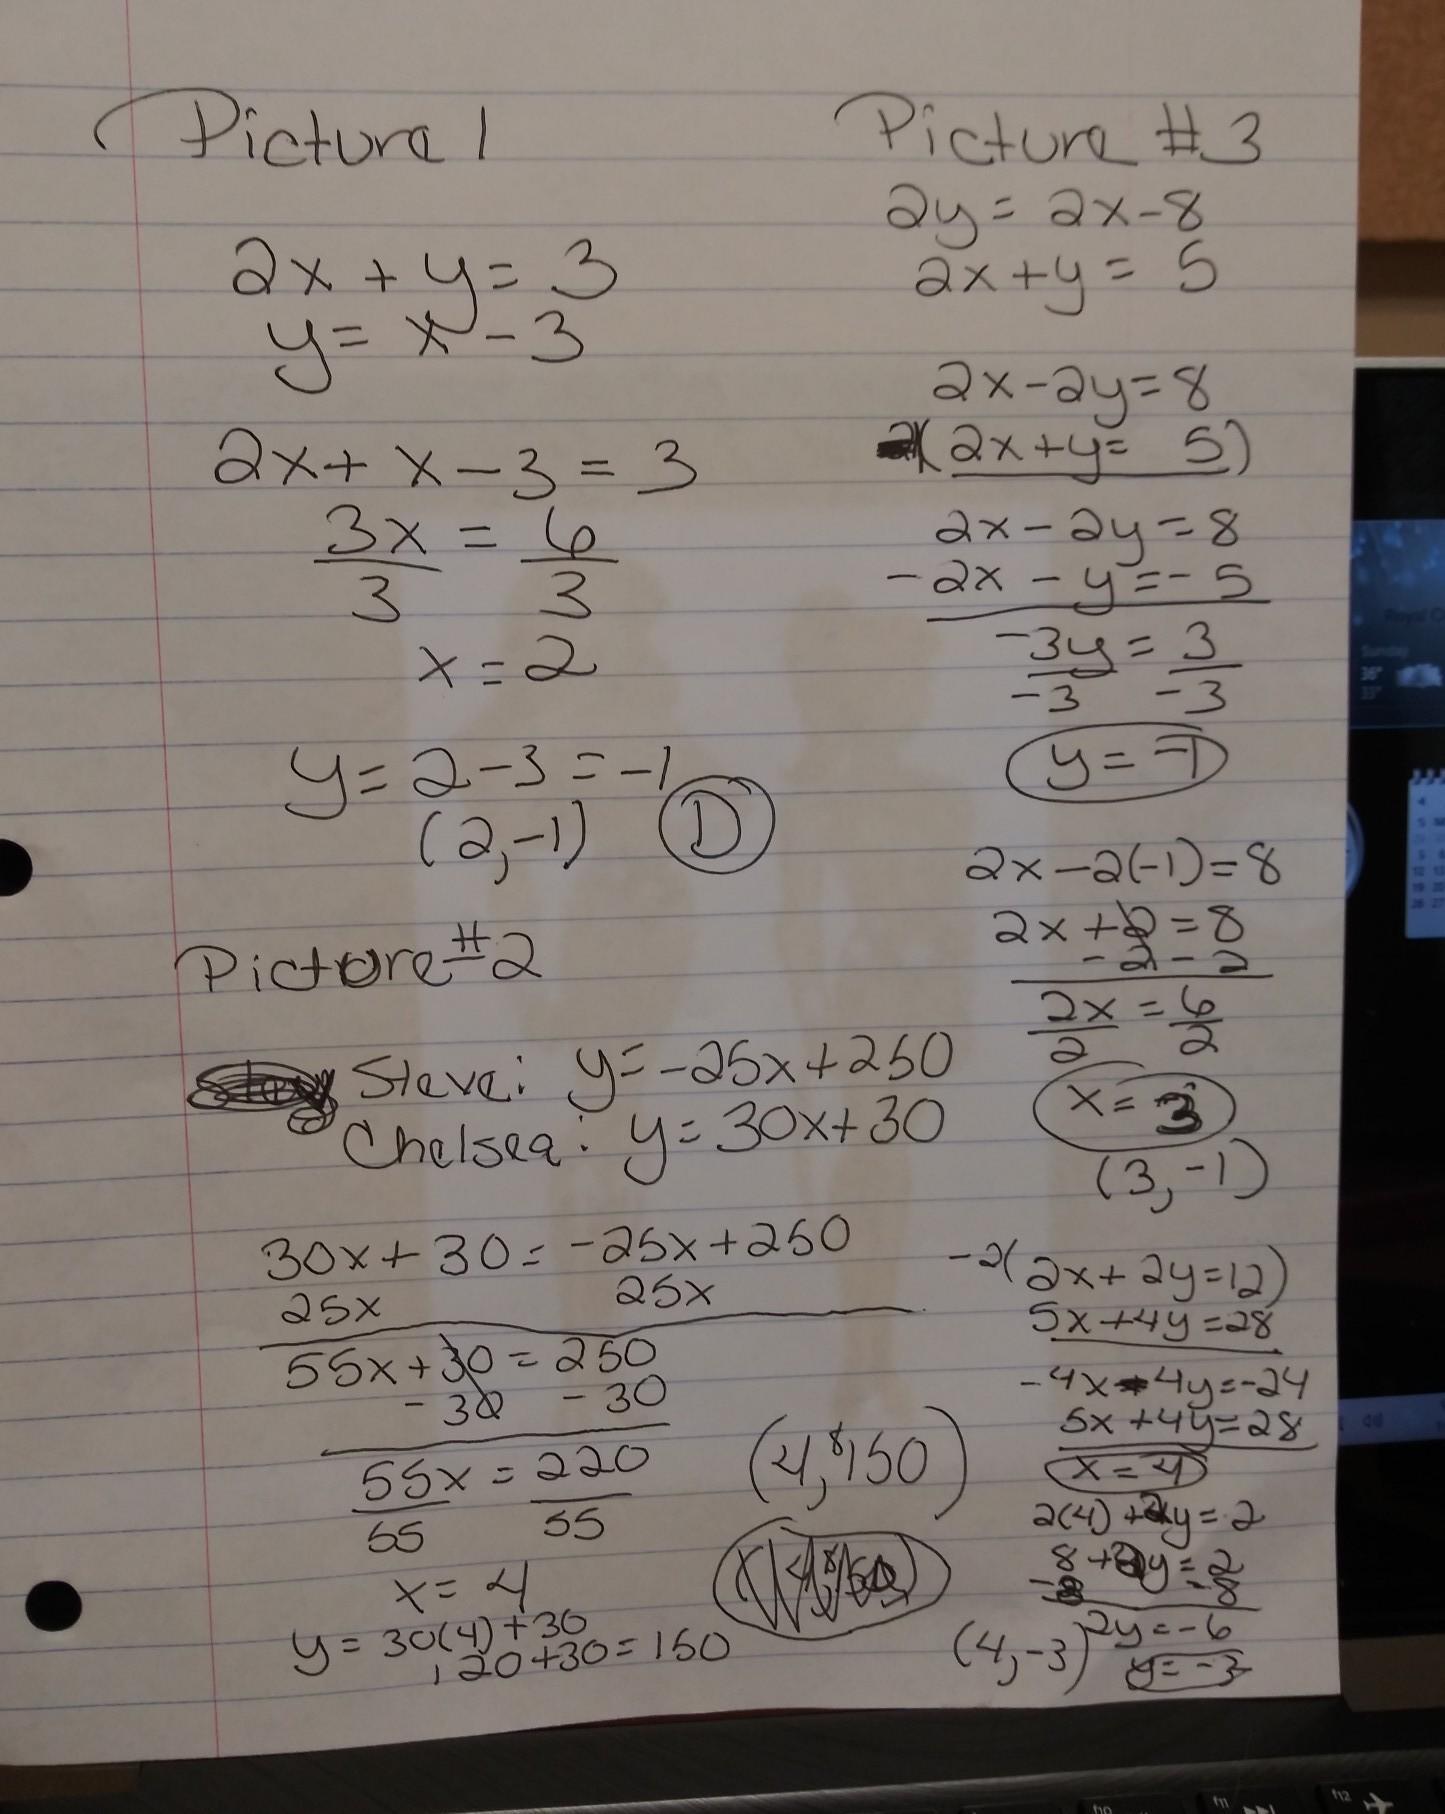 Picture 1
2x + y = 3
y = x - 3
2x + x - 3 = 3
3x = 6
3 3
x = 2
y = 2 - 3 = -1
(2, -1) D
Picture #2
Steve: y = -25x + 250
Chelsea: y = 30x + 30
30x + 30 = -25x + 250
25x 25x
55x + 30 = 250
- 30 - 30
55x = 220
55 55
x = 4
y = 30(4) + 30
120 + 30 = 150
(4, $150)
Picture #3
2y = 2x - 8
2x + y = 5
2x - 2y = 8
(2x + y = 5)
2x - 2y = 8
-2x - y = -5
-3y = 3
-3 -3
y = -1
2x - 2(-1) = 8
2x + 2 = 8
- 2 - 2
2x = 6
2 2
x = 3
(3, -1)
-2(2x + 2y = 12)
5x + 4y = 28
-4x - 4y = -24
5x + 4y = 28
x = 4
2(4) + 2y = 2
8 + 2y = 2
-8 -8
2y = -6
(4, -3) y = -3
f10 f11 f12